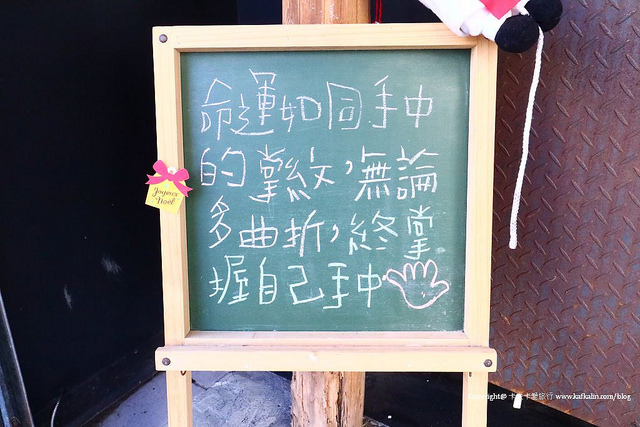 命運如同手中
的掌紋，無論
多曲折，終掌
握自己手中
Joyeux
Noël
Copyright@ 卡夫卡愛旅行 www.kafkalin.com/blog